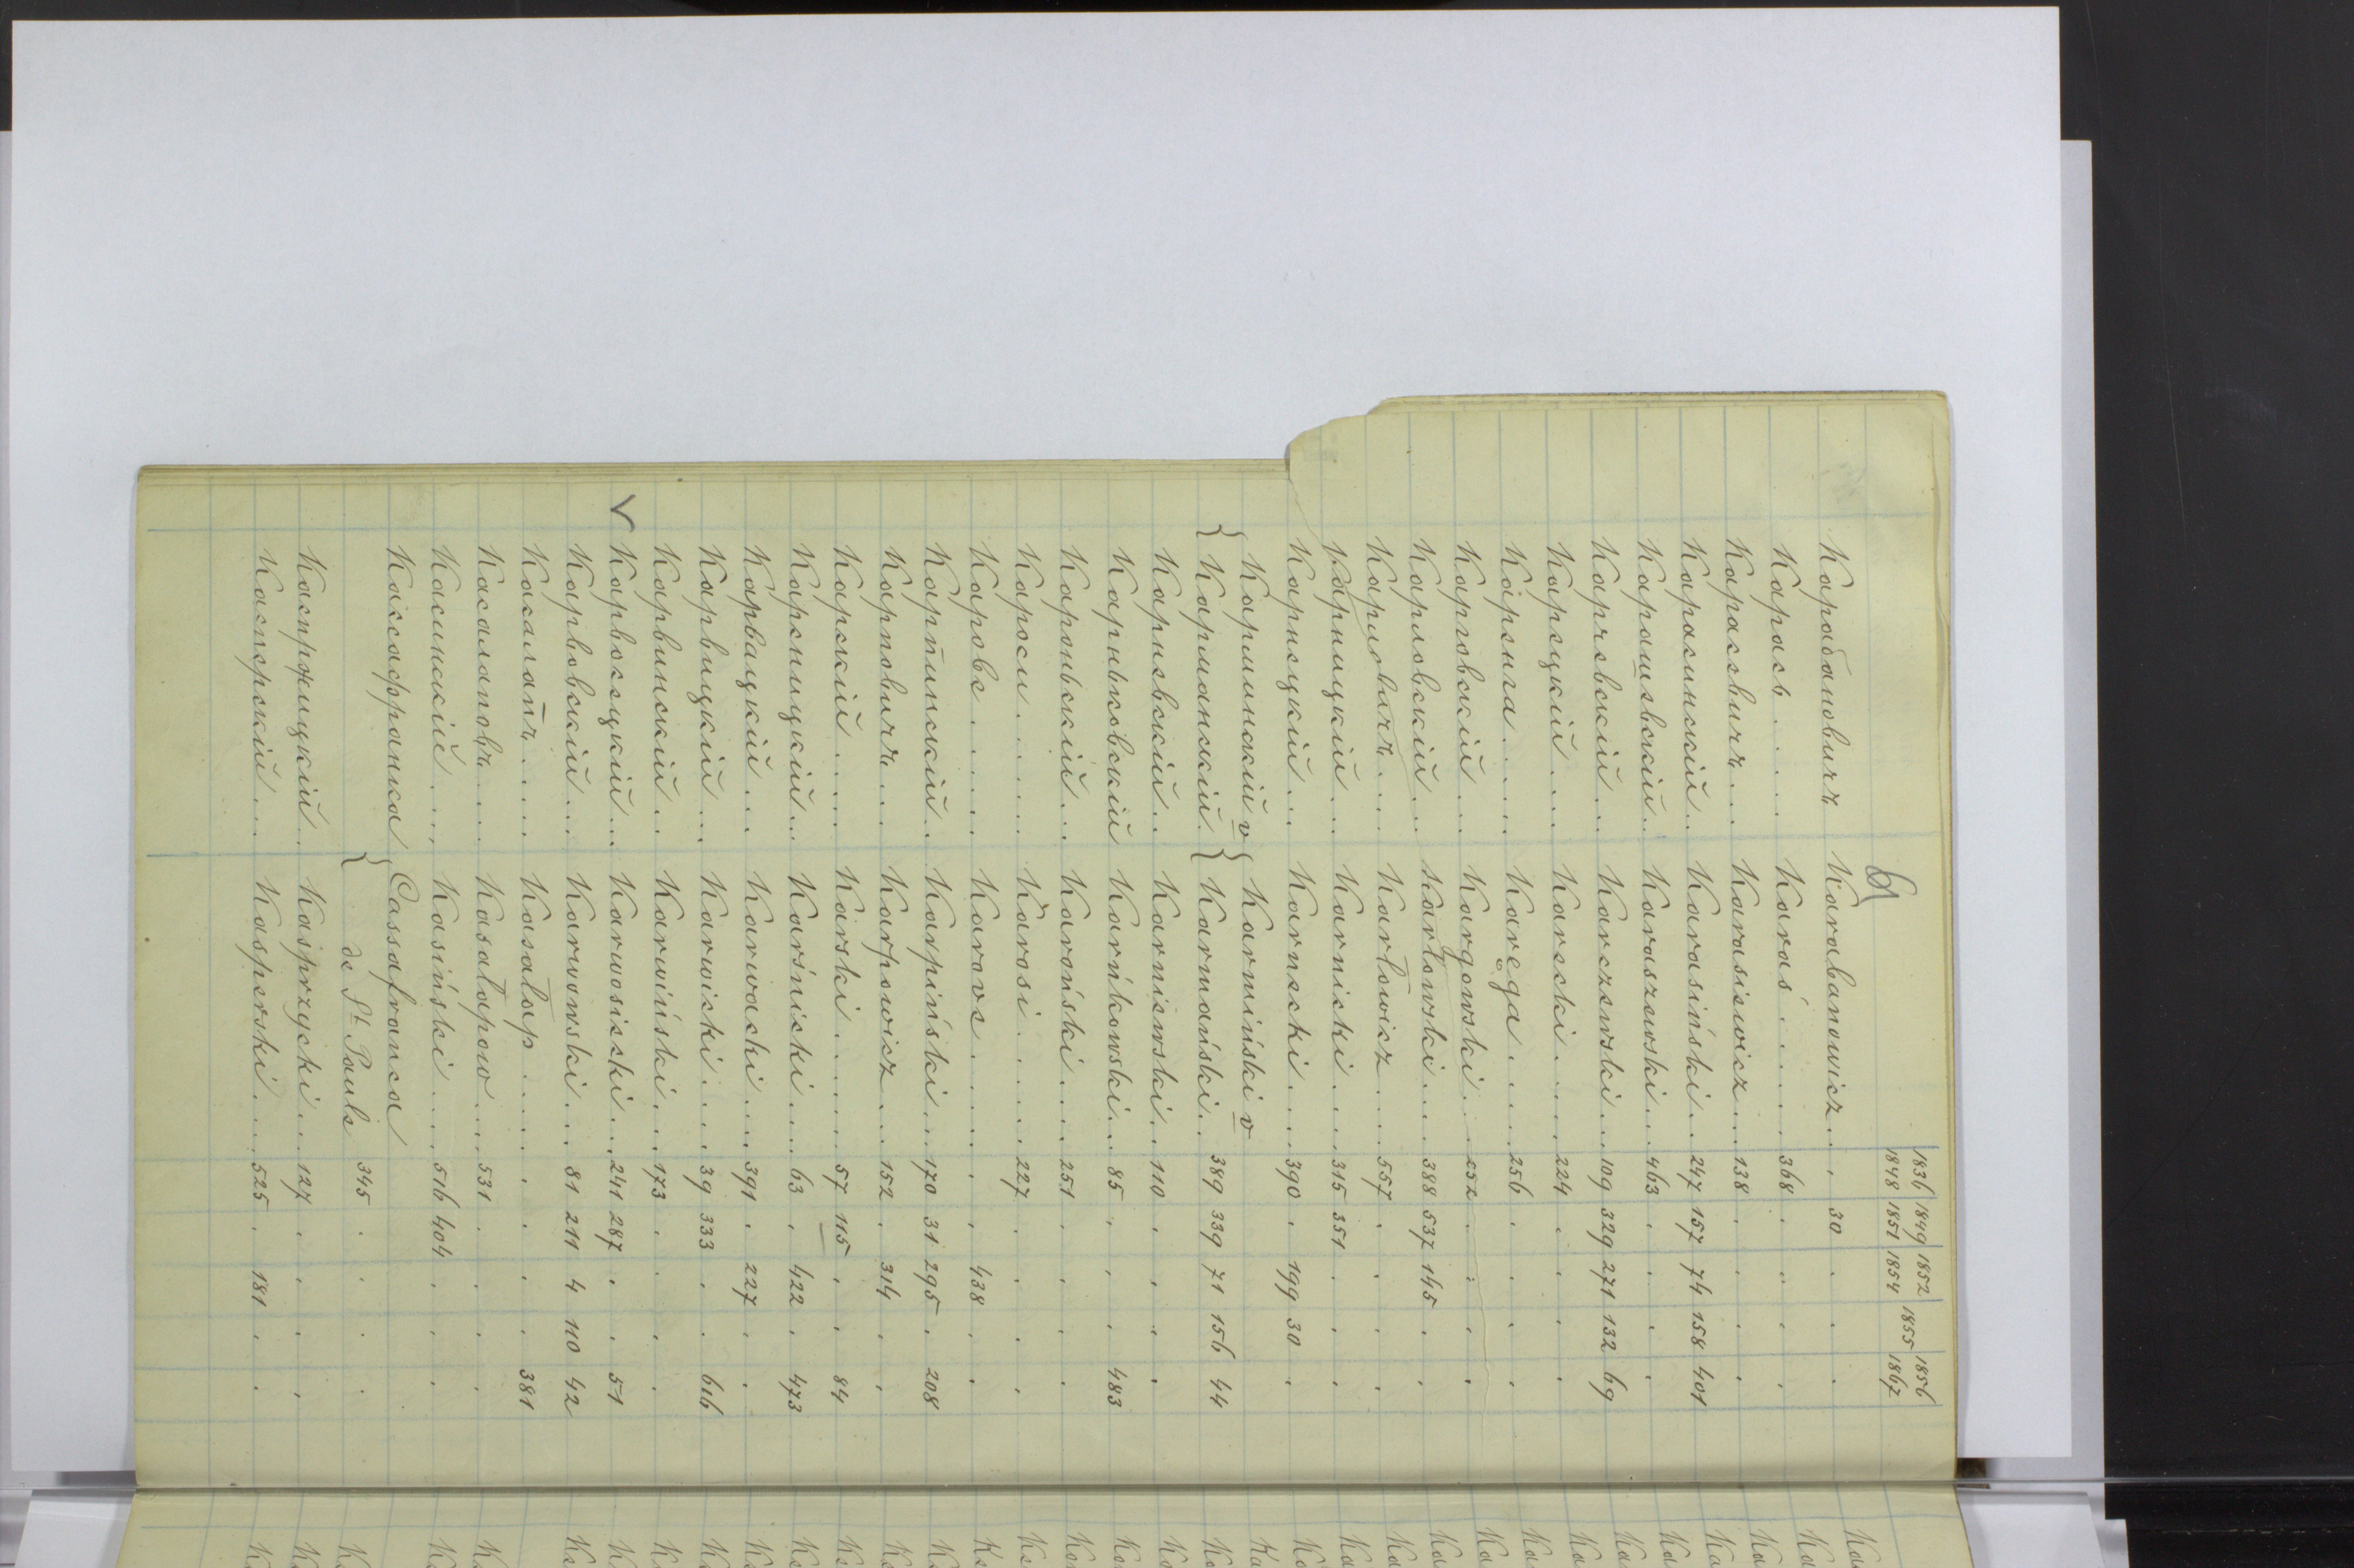 6
1836 1849 1852 1855 1856
1848 1851 1854 1867
Карабановичъ Karabanowicz . . . 30 . . .
Карась . . . . Karaś . . . . . 368 . . . .
Карасевичъ . . . Karasiewicz . . . 138 . . . .
Карасинскій . . Karasiński . . 247 157 74 158 401
Карашевскій . . Karaszewski . . . 463 . . . .
Карчевскій . . . Karczewski . . . 109 329 271 132 69
Карецкій . . . . Karecki . . . . 224 . . . .
Каренга . . . . . Karęga . . . . . 256 . . . .
Карговскій . . . Kargowski . . . 252 . . . .
Карловскій . . . Karłowski . . . 388 537 145 . .
Карловичъ . . . Karłowicz . . . 557 . . . .
Карницкій . . . Karnicki . . . . 315 351 . . .
Карнецкій . . . Karnecki . . . . 390 . 199 30 .
{ Карминскій v } Karmiński v
{ Карманскій . } Karmański . . 389 339 71 156 44
Карневскій . . Karniewski . . 110 . . . .
Карньковскій Karńkowski . . . 85 . . . 483
Кароньскій . . . Karoński . . . . 251 . . . .
Кароси . . . . . Karosi . . . . . 227 . . . .
Карове . . . . . Karowe . . . . . . . 438 . .
Карпинскій . . Karpiński . . . 170 31 295 . 208
Карповичъ . . . Karpowicz . . . 152 . 314 . .
Карскій . . . . . Karski . . . . . 57 115 . . 84
Карсницкій . . . Karśnicki . . . . 63 . 422 . 473
Карвацкій . . . Karwacki . . . . 391 . 227 . .
Карвицкій . . . Karwicki . . . . 39 333 . . 616
Карвинскій . . Karwiński . . . 173 . . . .
v Карвосецкій . . . Karwosiecki . . . 241 287 . . 51
Карвовскій . . . Karwowski . . . 81 211 4 110 42
Касалапъ . . . . Kasałap . . . . . . . . . 381
Касалаповъ . . . Kasałapow . . . 531 . . . .
Касинскій . . . . Kasiński . . . . 516 404 . . .
Кассафранка } Cassafranca
de St. Paula 345 . . . .
Каспржицкій . . Kasprzycki . . . 127 . . . .
Касперскій . . . Kasperski . . . . 525 . 181 . .